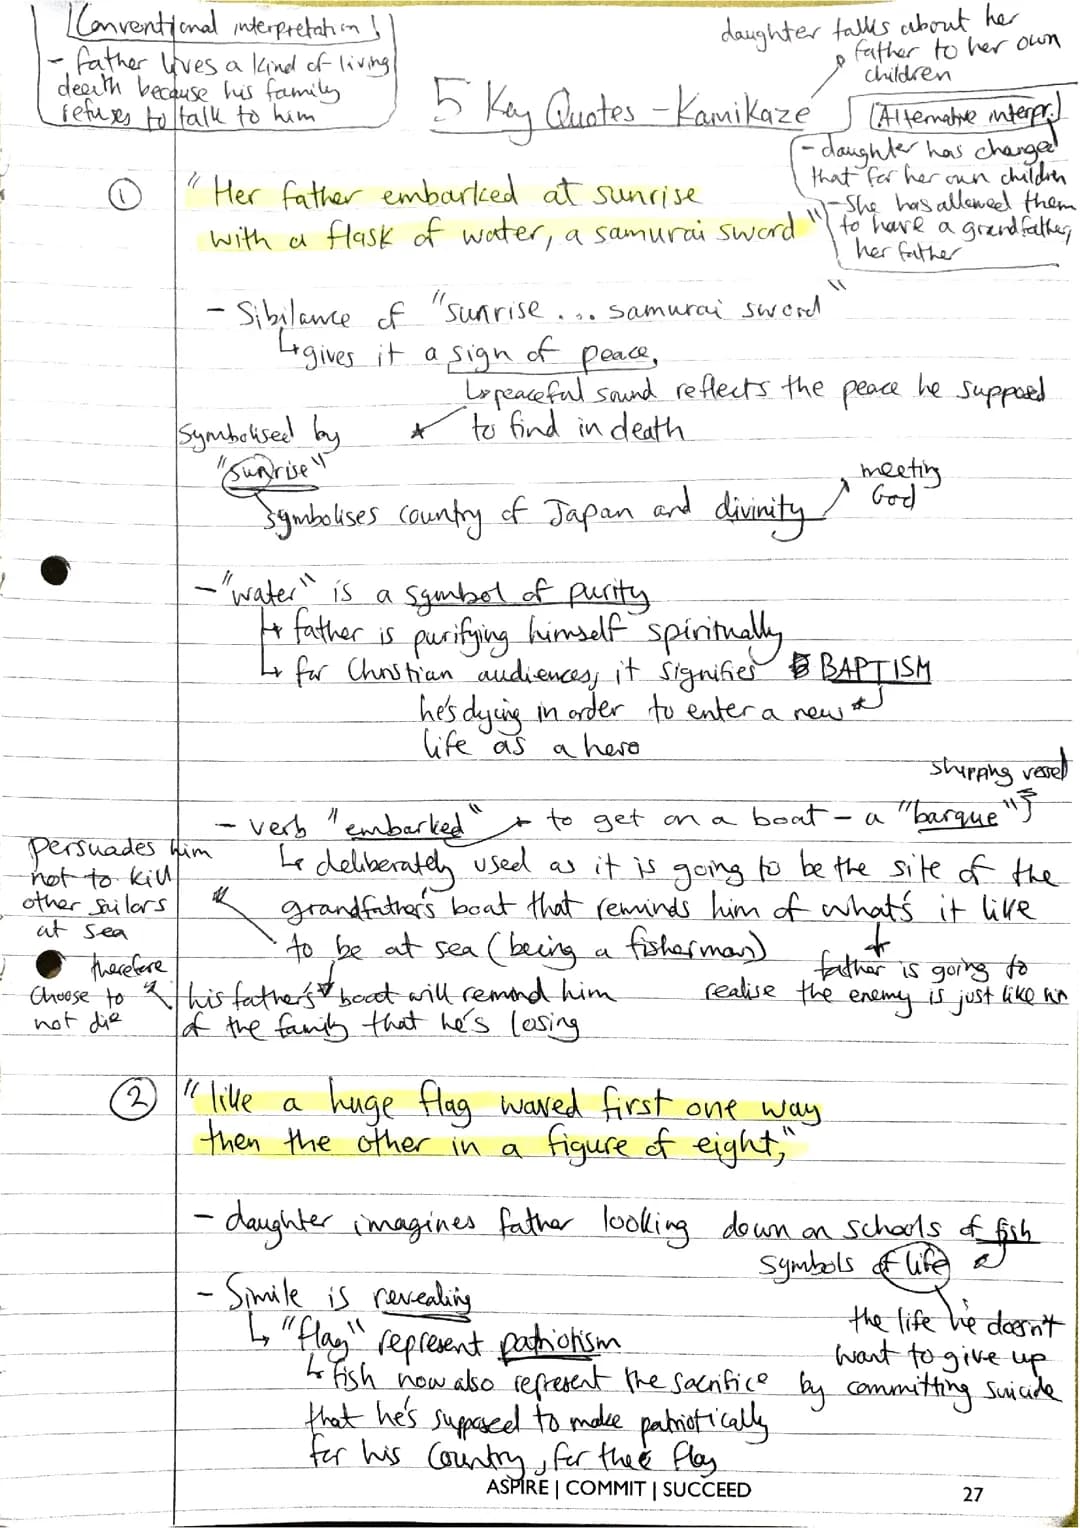 [Conventional interpretation]
- father lives a kind of living
death because his family
refuses to talk to him
daughter talks about her
father to her own
children
5 Key Quotes - Kamikaze
[Alternative interpr.]
- daughter has changed
that for her own children
- She has allowed them
to have a grandfather,
her father
① "Her father embarked at sunrise
with a flask of water, a samurai sword"
- Sibilance of "sunrise ... samurai sword"
↳ gives it a sign of peace,
↳ peaceful sound reflects the peace he supposed
to find in death
Symbolised by
"sunrise"
symbolises country of Japan and divinity
meeting
God
- "water" is a symbol of purity
↳ father is purifying himself spiritually
↳ for Christian audiences, it signifies BAPTISM
he's dying in order to enter a new
life as a hero
shipping vessel
- verb "embarked" → to get on a boat - a "barque"
↳ deliberately used as it is going to be the site of the
grandfather's boat that reminds him of what's it like
to be at sea (being a fisherman)
father is going to
realise the enemy is just like him
persuades him
not to kill
other sailors
at sea
his father's boat will remind him
of the family that he's losing
therefore
choose to
not die
② "like a huge flag waved first one way
then the other in a figure of eight,"
- daughter imagines father looking down on schools of fish
symbols of life
the life he doesn't
want to give up
by committing suicide
- Simile is revealing
↳ "flag" represent patriotism
↳ fish now also represent the sacrifice
that he's supposed to make patriotically
for his country, for the flag
ASPIRE | COMMIT | SUCCEED
27